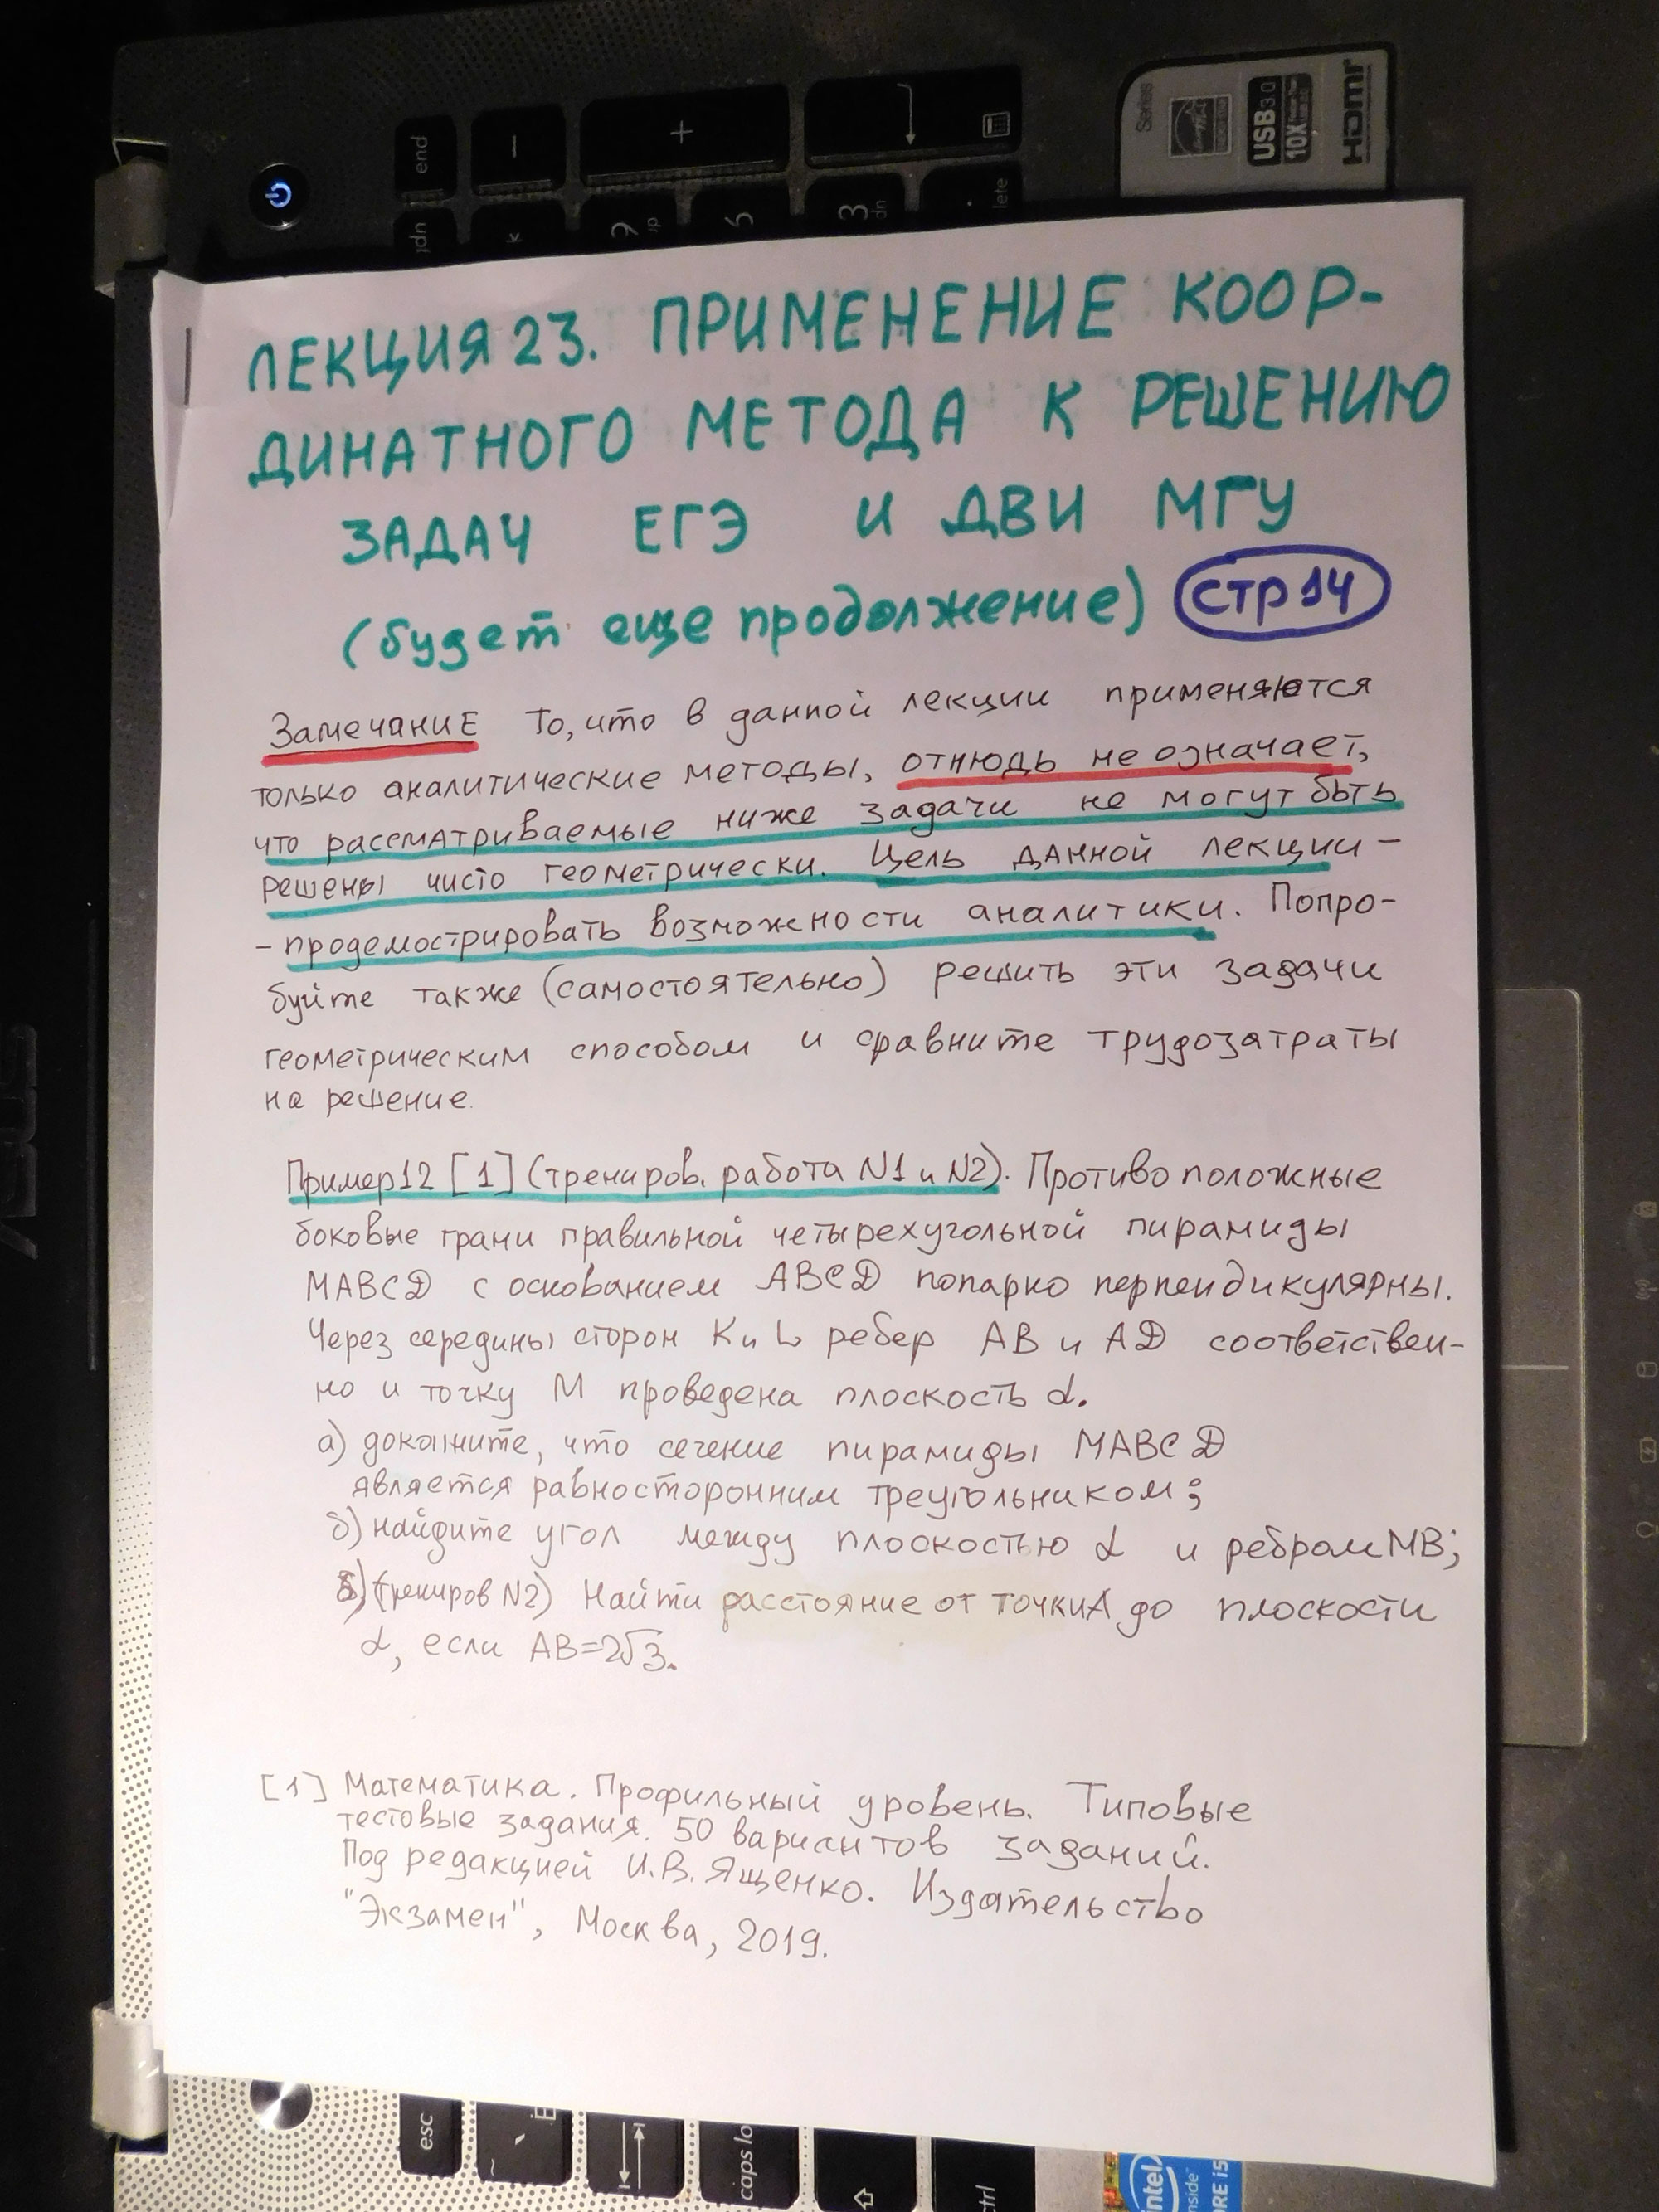 end
-
+
Series
USB3.0
10X
HDMI
9
6
3
dn
lete
ЛЕКЦИЯ 23. ПРИМЕНЕНИЕ КООР-
ДИНАТНОГО МЕТОДА К РЕШЕНИЮ
ЗАДАЧ ЕГЭ И ДВИ МГУ
(будет еще продолжение) стр 14
Замечание То, что в данной лекции применяются
только аналитические методы, отнюдь не означает,
что рассматриваемые ниже задачи не могут быть
решены чисто геометрически. Цель данной лекции -
- продемострировать возможности аналитики. Попро-
буйте также (самостоятельно) решить эти задачи
геометрическим способом и сравните трудозатраты
на решение.
Пример 12 [1] (трениров. работа N1 и N2). Противоположные
боковые грани правильной четырехугольной пирамиды
MABCD с основанием ABCD попарно перпендикулярны.
Через середины сторон K и L ребер AB и AD соответствен-
но и точку M проведена плоскость α.
а) докажите, что сечение пирамиды MABCD
является равносторонним треугольником;
б) найдите угол между плоскостью α и ребром MB;
в) (трениров N2) Найти расстояние от точки A до плоскости
α, если AB=2√3.
[1] Математика. Профильный уровень. Типовые
тестовые задания. 50 вариантов заданий.
Под редакцией И.В. Ященко. Издательство
"Экзамен", Москва, 2019.
esc
caps lo
ctrl
intel
inside
ORE i5